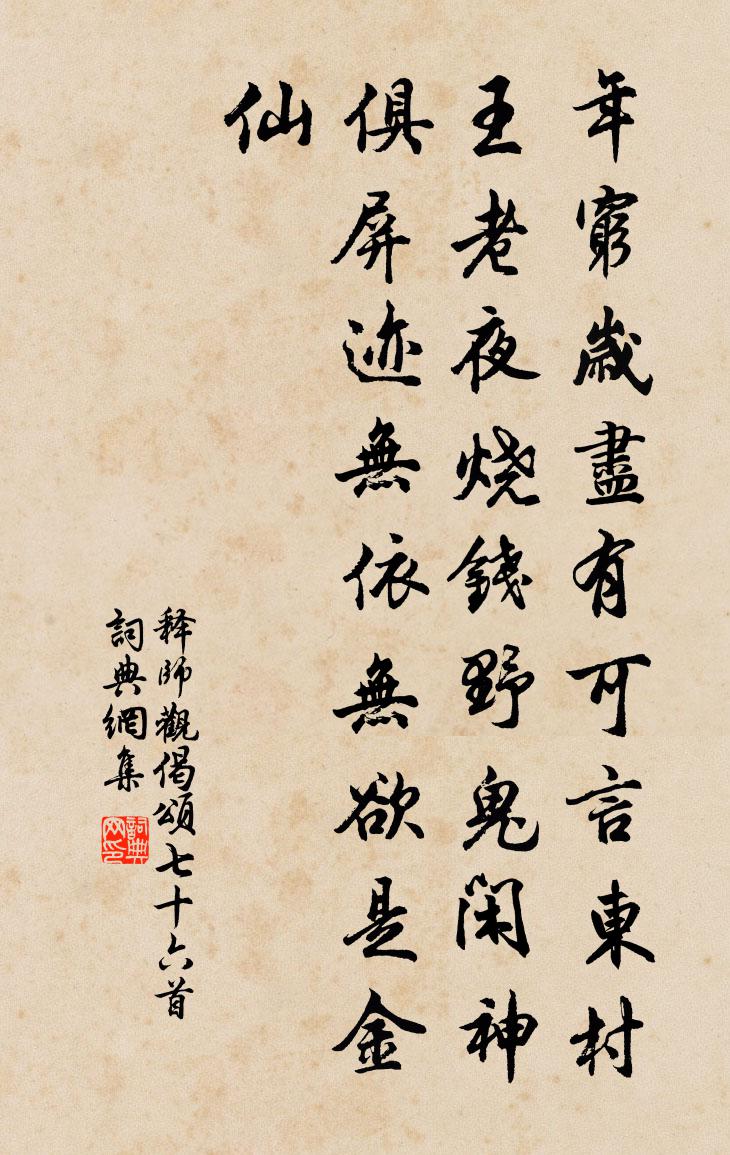 年窮歲盡有可言東村
王老夜燒錢野鬼閑神
俱屏迹無依無欲是金
仙
释師觀偈頌七十六首
詞典網集
詞典
网印